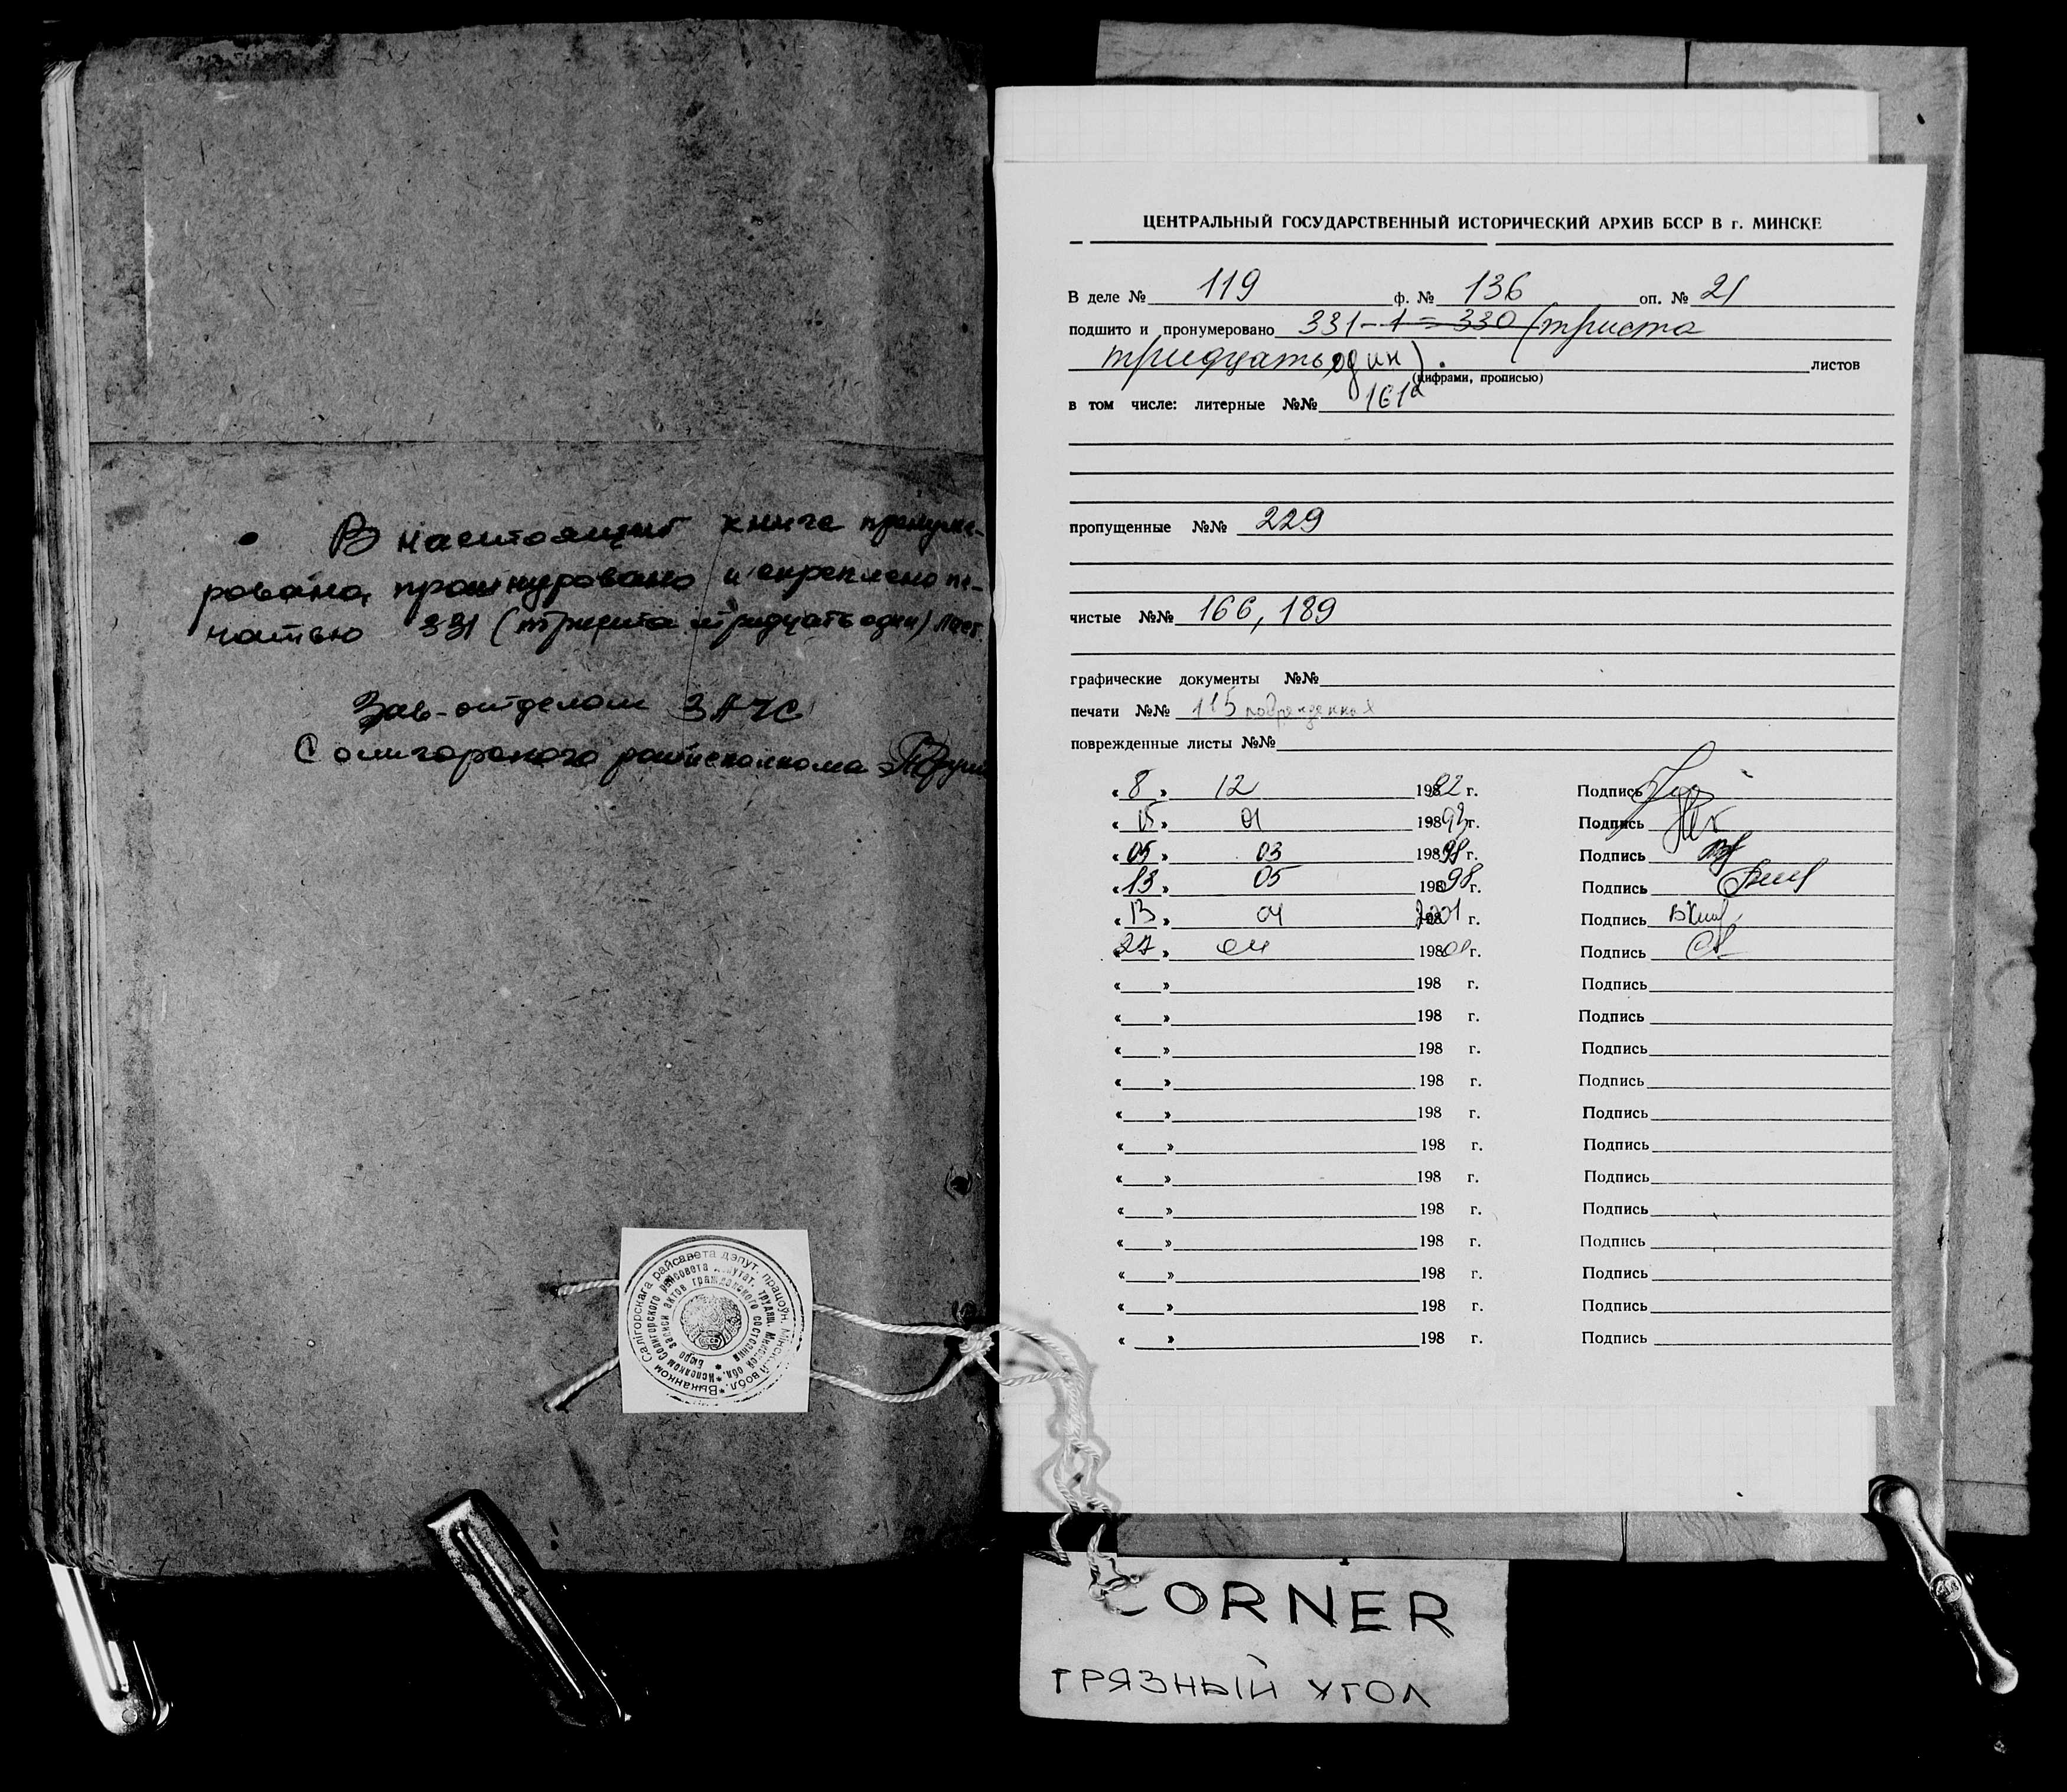 В настоящей книге пронуме-
рована, прошнуровано и скреплено пе-
чатью 331 (триста тридцать один) лист.
Зав. отделом ЗАГС
Солигорского райисполкома
Выканком Салігорскага райсавета дэпут. працоўн. Мінскай вобл.
Исполком Солигорского райсовета депутат. трудящ. Минской обл.
Бюро записи актов гражданского состояния
ЦЕНТРАЛЬНЫЙ ГОСУДАРСТВЕННЫЙ ИСТОРИЧЕСКИЙ АРХИВ БССР В г. МИНСКЕ
В деле № 119 ф. № 136 оп. № 21
подшито и пронумеровано 331 - 1 = 330 (триста
тридцать один). листов
(цифрами, прописью)
в том числе: литерные №№ 161а
пропущенные №№ 229
чистые №№ 166, 189
графические документы №№
печати №№ 115
поврежденные листы №№
« 8 » 12 1992 г. Подпись
« 15 » 01 1993 г. Подпись
« 05 » 03 1998 г. Подпись
« 13 » 05 1998 г. Подпись
« 13 » 04 2001 г. Подпись
« 27 » 04 198 01 г. Подпись
« » 198 г. Подпись
« » 198 г. Подпись
« » 198 г. Подпись
« » 198 г. Подпись
« » 198 г. Подпись
« » 198 г. Подпись
« » 198 г. Подпись
« » 198 г. Подпись
« » 198 г. Подпись
« » 198 г. Подпись
« » 198 г. Подпись
« » 198 г. Подпись
CORNER
ГРЯЗНЫЙ УГОЛ